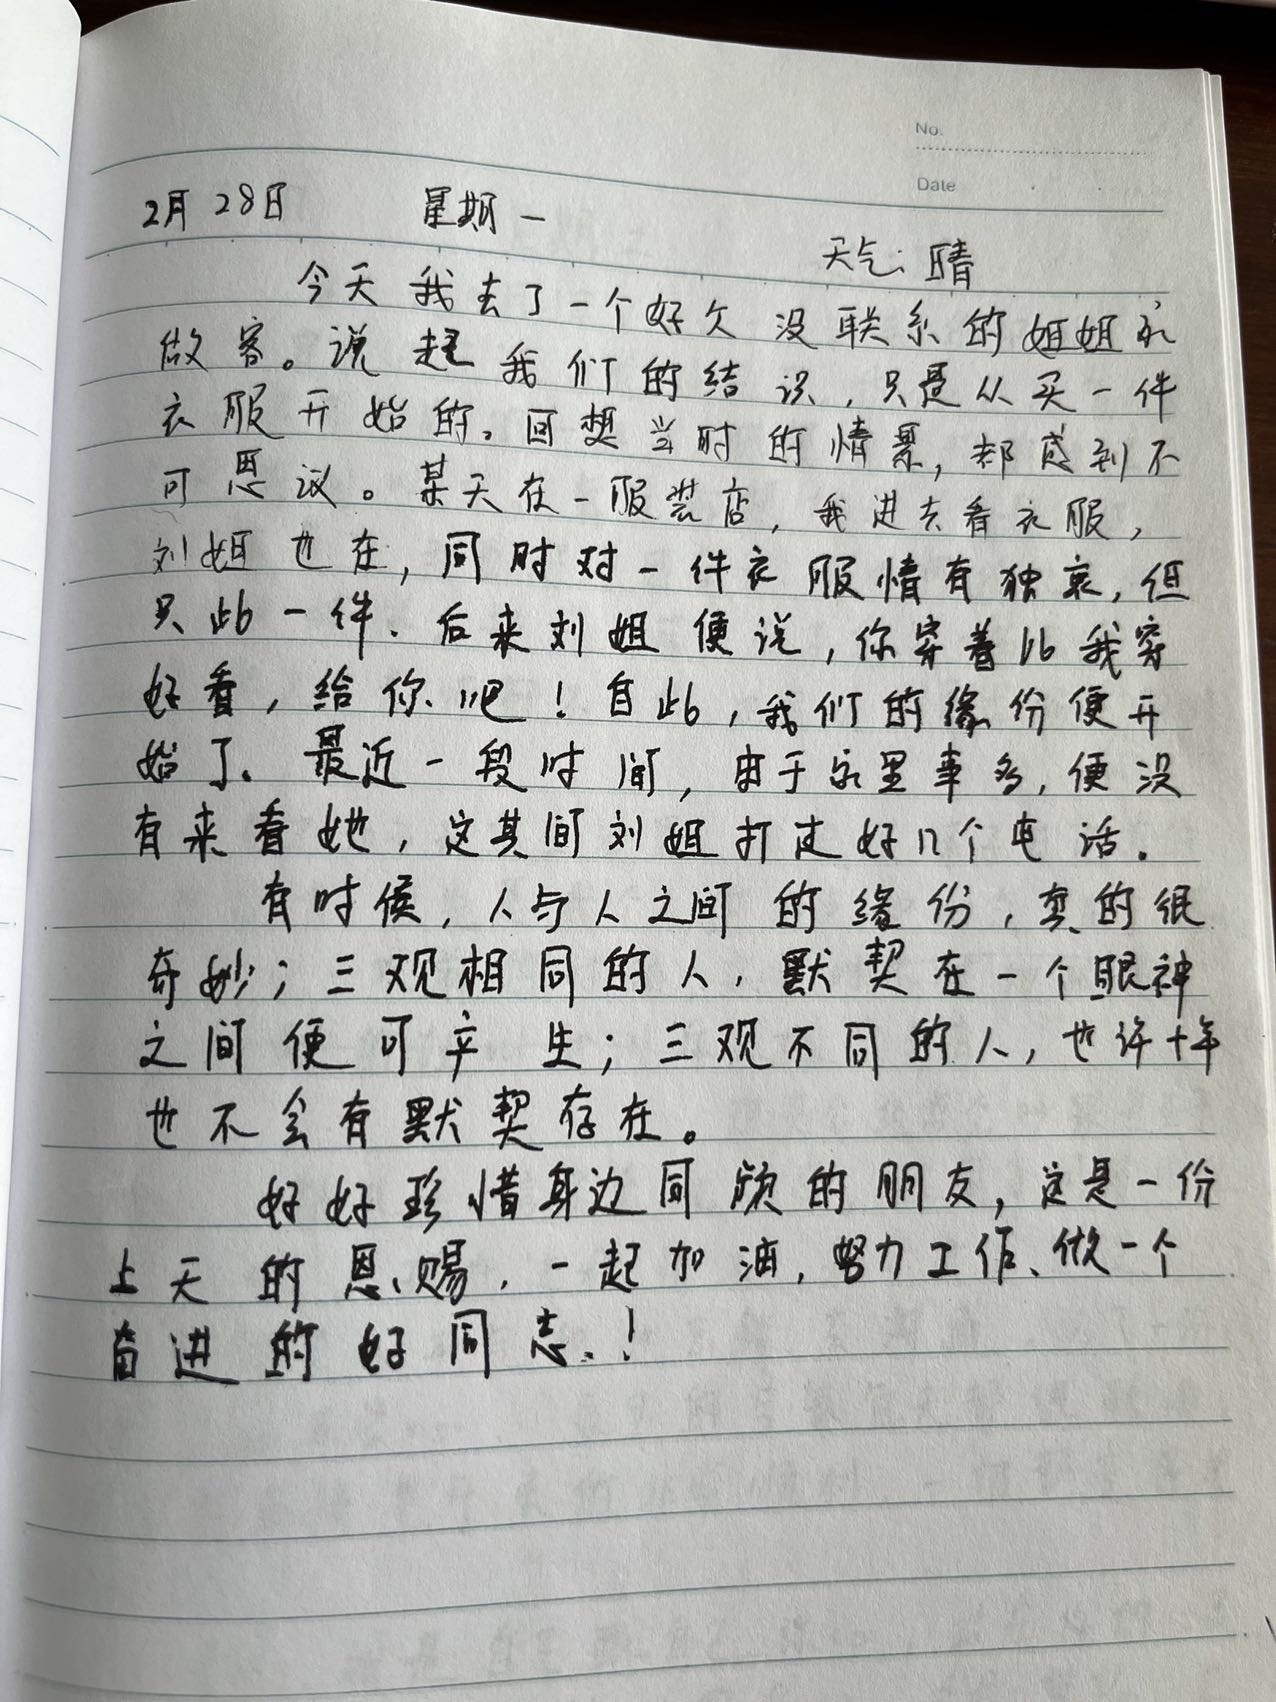 No.
Date
2月28日 星期一
天气:晴
今天我去了一个好久没联系的姐姐家
做客。说起我们的结识,只是从买一件
衣服开始的。回想当时的情景,都感到不
可思议。某天在一服装店,我进去看衣服,
刘姐也在,同时对一件衣服情有独衷,但
只此一件、后来刘姐便说,你穿着比我穿
好看,给你吧!自此,我们的缘份便开
始了。最近一段时间,由于家里事多,便没
有来看她,这其间刘姐打过好几个电话。
有时候,人与人之间的缘份,真的很
奇妙;三观相同的人,默契在一个眼神
之间便可产生;三观不同的人,也许十年
也不会有默契存在。
好好珍惜身边同频的朋友,这是一份
上天的恩赐,一起加油,努力工作、做一个
奋进的好同志、!